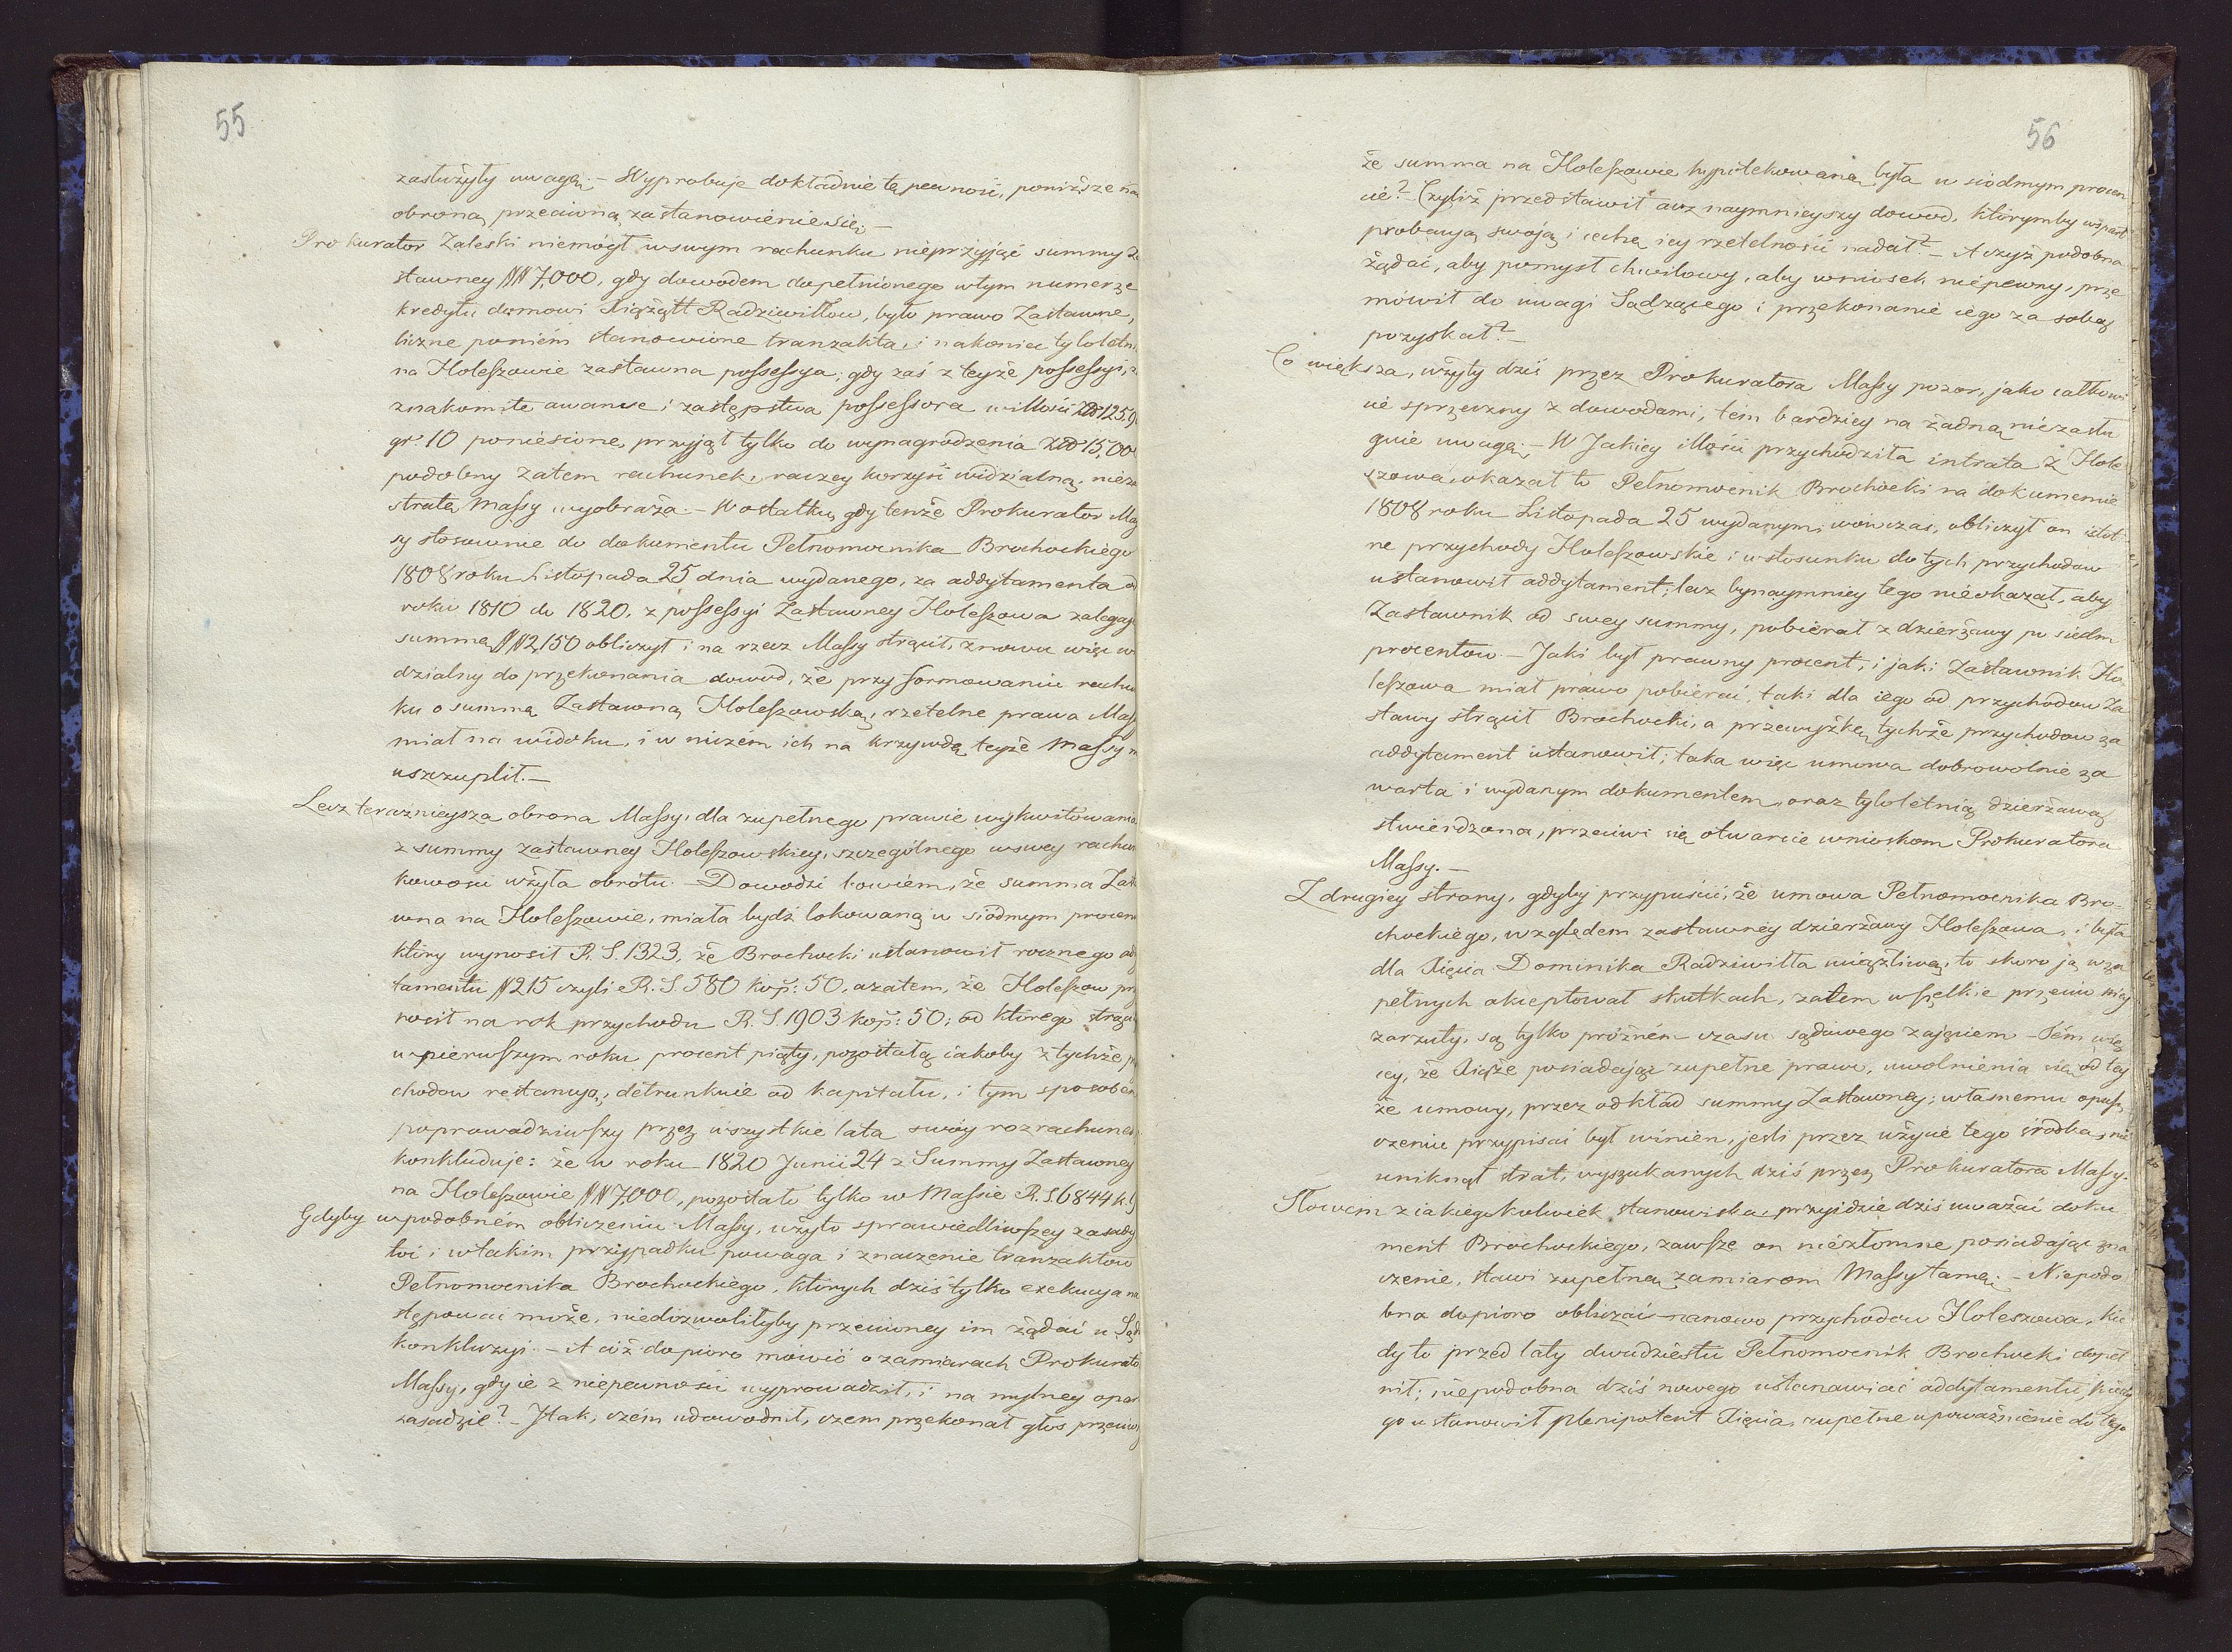 55
zasłużyły uwagę. – Wyprobuje dokładnie tę pewność, poniższe na
obroną przeciwną zastanowienie się. –
Prokurator Zaleski niemógł w swym rachunku nieprzyjąć summy Za
stawney ## 7,000, gdy dowodem dopełnionego w tym numerze
kredytu domowi Xiążątt Radziwiłłow, było prawo Zastawne,
liczne poniém stanowione tranzakta, i nakoniec tyloletni
na Holeszowie zastawna possessya; gdy zaś z teyże possessyi,
znakomite awanse i zastępstwa possessora w illości Złł 125,9
gr. 10 poniesione, przyjął tylko do wynagrodzenia Złł 15,00
podobny zatem rachunek, raczey korzyść widzialną, nieza
stratę Massy wyobraża. – W ostatku, gdy tenże Prokurator Mas
sy stosownie do dokumentu Pełnomocnika Brochockiego
1808 roku Listopada 25 dnia wydanego, za addytamenta od
roku 1810 do 1820, z possessyi Zastawney Holeszowa zalegaj
summę ## 2,150 obliczył i na rzecz Massy strącił, znowu więc wi
dzialny do przekonania dowod, że przy formowaniu rachun
ku o summę Zastawną Holeszowską, rzetelne prawa Mass
miał na widoku, i w niczém ich na krzywdę teyże Massy n
uszczuplił. –
Lecz teraznieysza obrona Massy, dla zupełnego prawie wykwitowania
z summy zastawney Holeszowskiey, szczególnego w swey rachun
kowosci użyła obrótu. – Dowodzi bowiém, że summa Zast
wna na Holeszowie, miała bydź lokowaną w siódmym procen
który wynosił R. S. 1323, że Brochocki ustanowił rocznego ad
tamentu # 215 czyli R. S. 580 kop: 50, azatem, że Holeszow pr
nosił na rok przychodu R. S. 1903 kop: 50; od którego strąca
w pierwszym roku procent piąty, pozostałą iakoby z tychże p
chodow restancyą, detrunkuie od kapitału, i tym sposobem
poprowadziwszy przez wszystkie lata swóy rozrachunek
konkluduje: że w roku 1820 Junii 24 z Summy Zastawney
na Holeszowie ## 7,000, pozostało tylko w Massie R. S. 6844 k.
Gdyby w podobném obliczeniu Massy, użyto sprawiedliwszey zasady
toć i w takim przypadku powaga i znaczenie tranzaktow
Pełnomocnika Brochockiego, których dziś tylko exekucya na
stępować może, niedozwoliłyby przeciwney im żądać w Sąd
konkluzyi. – A cóż dopioro mówić o zamiarach Prokurato
Massy, gdy ie z niepewności wyprowadził, i na mylney opar
zasadzie? – Jtak, czém udowodnił, czem przekonał głos przeciwny
56
że summa na Holeszowie hypotekowana, była w siodmym procen
cie? – Czyliż przedstawił acz naymnieyszy dowod, którymby wsparł
probacyą swoją i cechę iey rzetelności nadał? – A czyż podobna
żądać, aby pomysł chwilowy, aby wniosek niepewny, prze
mówił do uwagi Sądzącego i przekonanie iego za sobą
pozyskał? –
Co większa, użyty dziś przez Prokuratora Massy pozor, jako całkowi
cie sprzeczny z dowodami, tém bardziey na żadną niezasłu
guie uwagę. – W Jakiey illości przychodziła intrata z Hole
szowa, okazał to Pełnomocnik Brochocki na dokumencie
1808 roku Listopada 25 wydanym; wówczas, obliczył on istot
ne przychody Holeszowskie i w stosunku do tych przychodow
ustanowił addytament; lecz bynaymniey tego nieokazał, aby
Zastawnik od swey summy, pobierał z dzierżawy po siedm
procentow. – Jaki był prawny procent, i jaki Zastawnik Ho-
leszowa miał prawo pobierać, taki dla iego od przychodow Za
stawy strącił Brochocki, a przewyżkę tychże przychodow za
addytament ustanowił; taka więc umowa dobrowolnie za
warta i wydanym dokumentem, oraz tyloletnią dzierżawą
stwierdzona, przeciwi się otwarcie wnioskom Prokuratora
Massy. –
Z drugiey strony, gdyby przypuścić, że umowa Pełnomocnika Bro-
chockiego, względem zastawney dzierżawy Holeszowa, i była
dla Xięcia Dominika Radziwiłła uciążliwą, to skoro ją w zu
pełnych akceptował skutkach, zatem wszelkie przeciw niey
zarzuty, są tylko próżném czasu sądowego zajęciem – Tém więc
iey, że Xiąże posiadając zupełne prawo, uwolnienia się od tey
że umowy, przez odkład summy Zastawney; własnemu opusz
czeniu przypisać był winien, jeśli przez użycie tego środka, nie
uniknął strat, wyszukanych dziś przez Prokuratora Massy.
Słowem z iakiegokolwiek stanowiska, przyidzie dziś uważać doku
ment Brochockiego, zawsze on niezłomne posiadając zna
czenie, stawi zupełną zamiarom Massy tamę. – Niepodo
bna dopioro obliczać nanowo przychodow Holeszowa, kie
dy to przed laty dwudziestu Pełnomocnik Brochocki dopeł
nił; niepodobna dziś nowego ustanawiać addytamentu, kiedy
go ustanowił plenipotent Xięcia, zupełne upoważnienie do tego